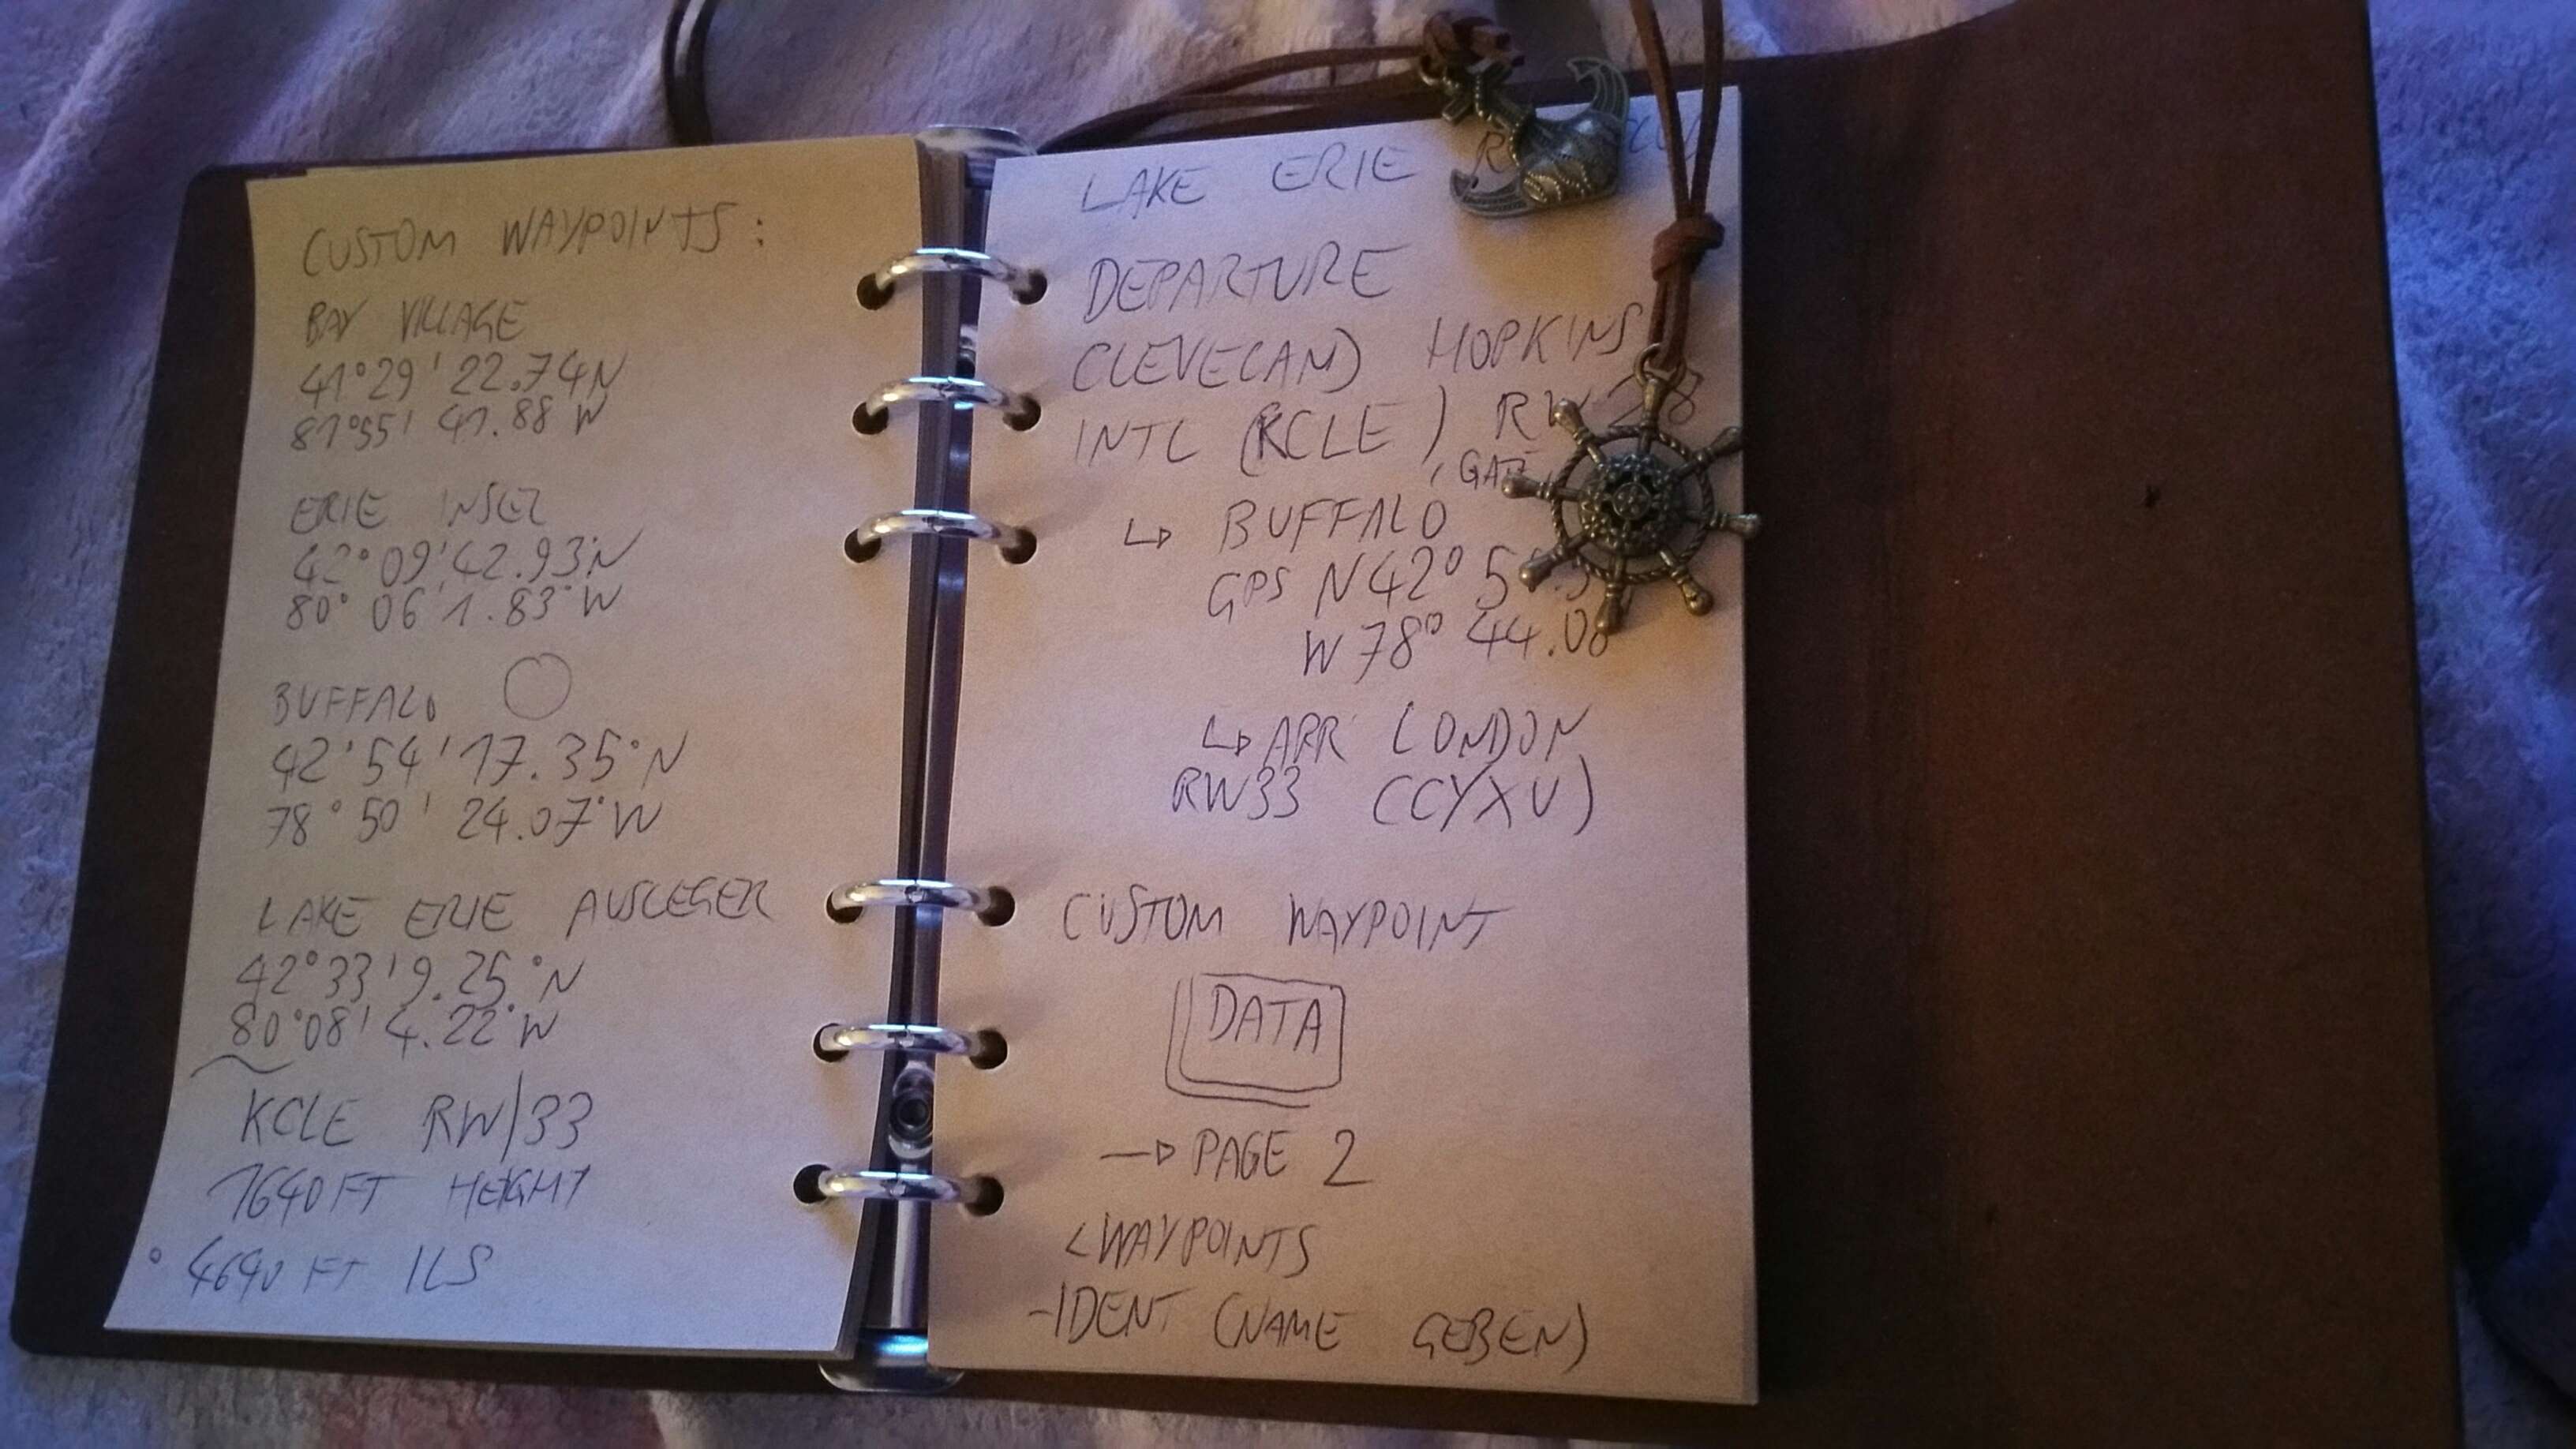 CUSTOM WAYPOINTS:
BAY VILLAGE
41°29'22.74N
81°55'41.88 W
ERIE INSEL
42°09'42.93"N
80°06'1.83"W
BUFFALO
42'54'17.35°N
78°50'24.07°W
LAKE ERIE AUSLEGER
42°33'9.25°N
80°08'4.22°W
KCLE RW/33
1640FT HEIGHT
° 4640 FT ILS
LAKE ERIE
DEPARTURE
CLEVELAND HOPKINS
INTL (KCLE) RW 28
, GATE
↳ BUFFALO
GPS N42°
W78° 44.08
↳ ARR LONDON
RW33 (CYXU)
CUSTOM WAYPOINT
DATA
→ PAGE 2
<WAYPOINTS
-IDENT (NAME GEBEN)